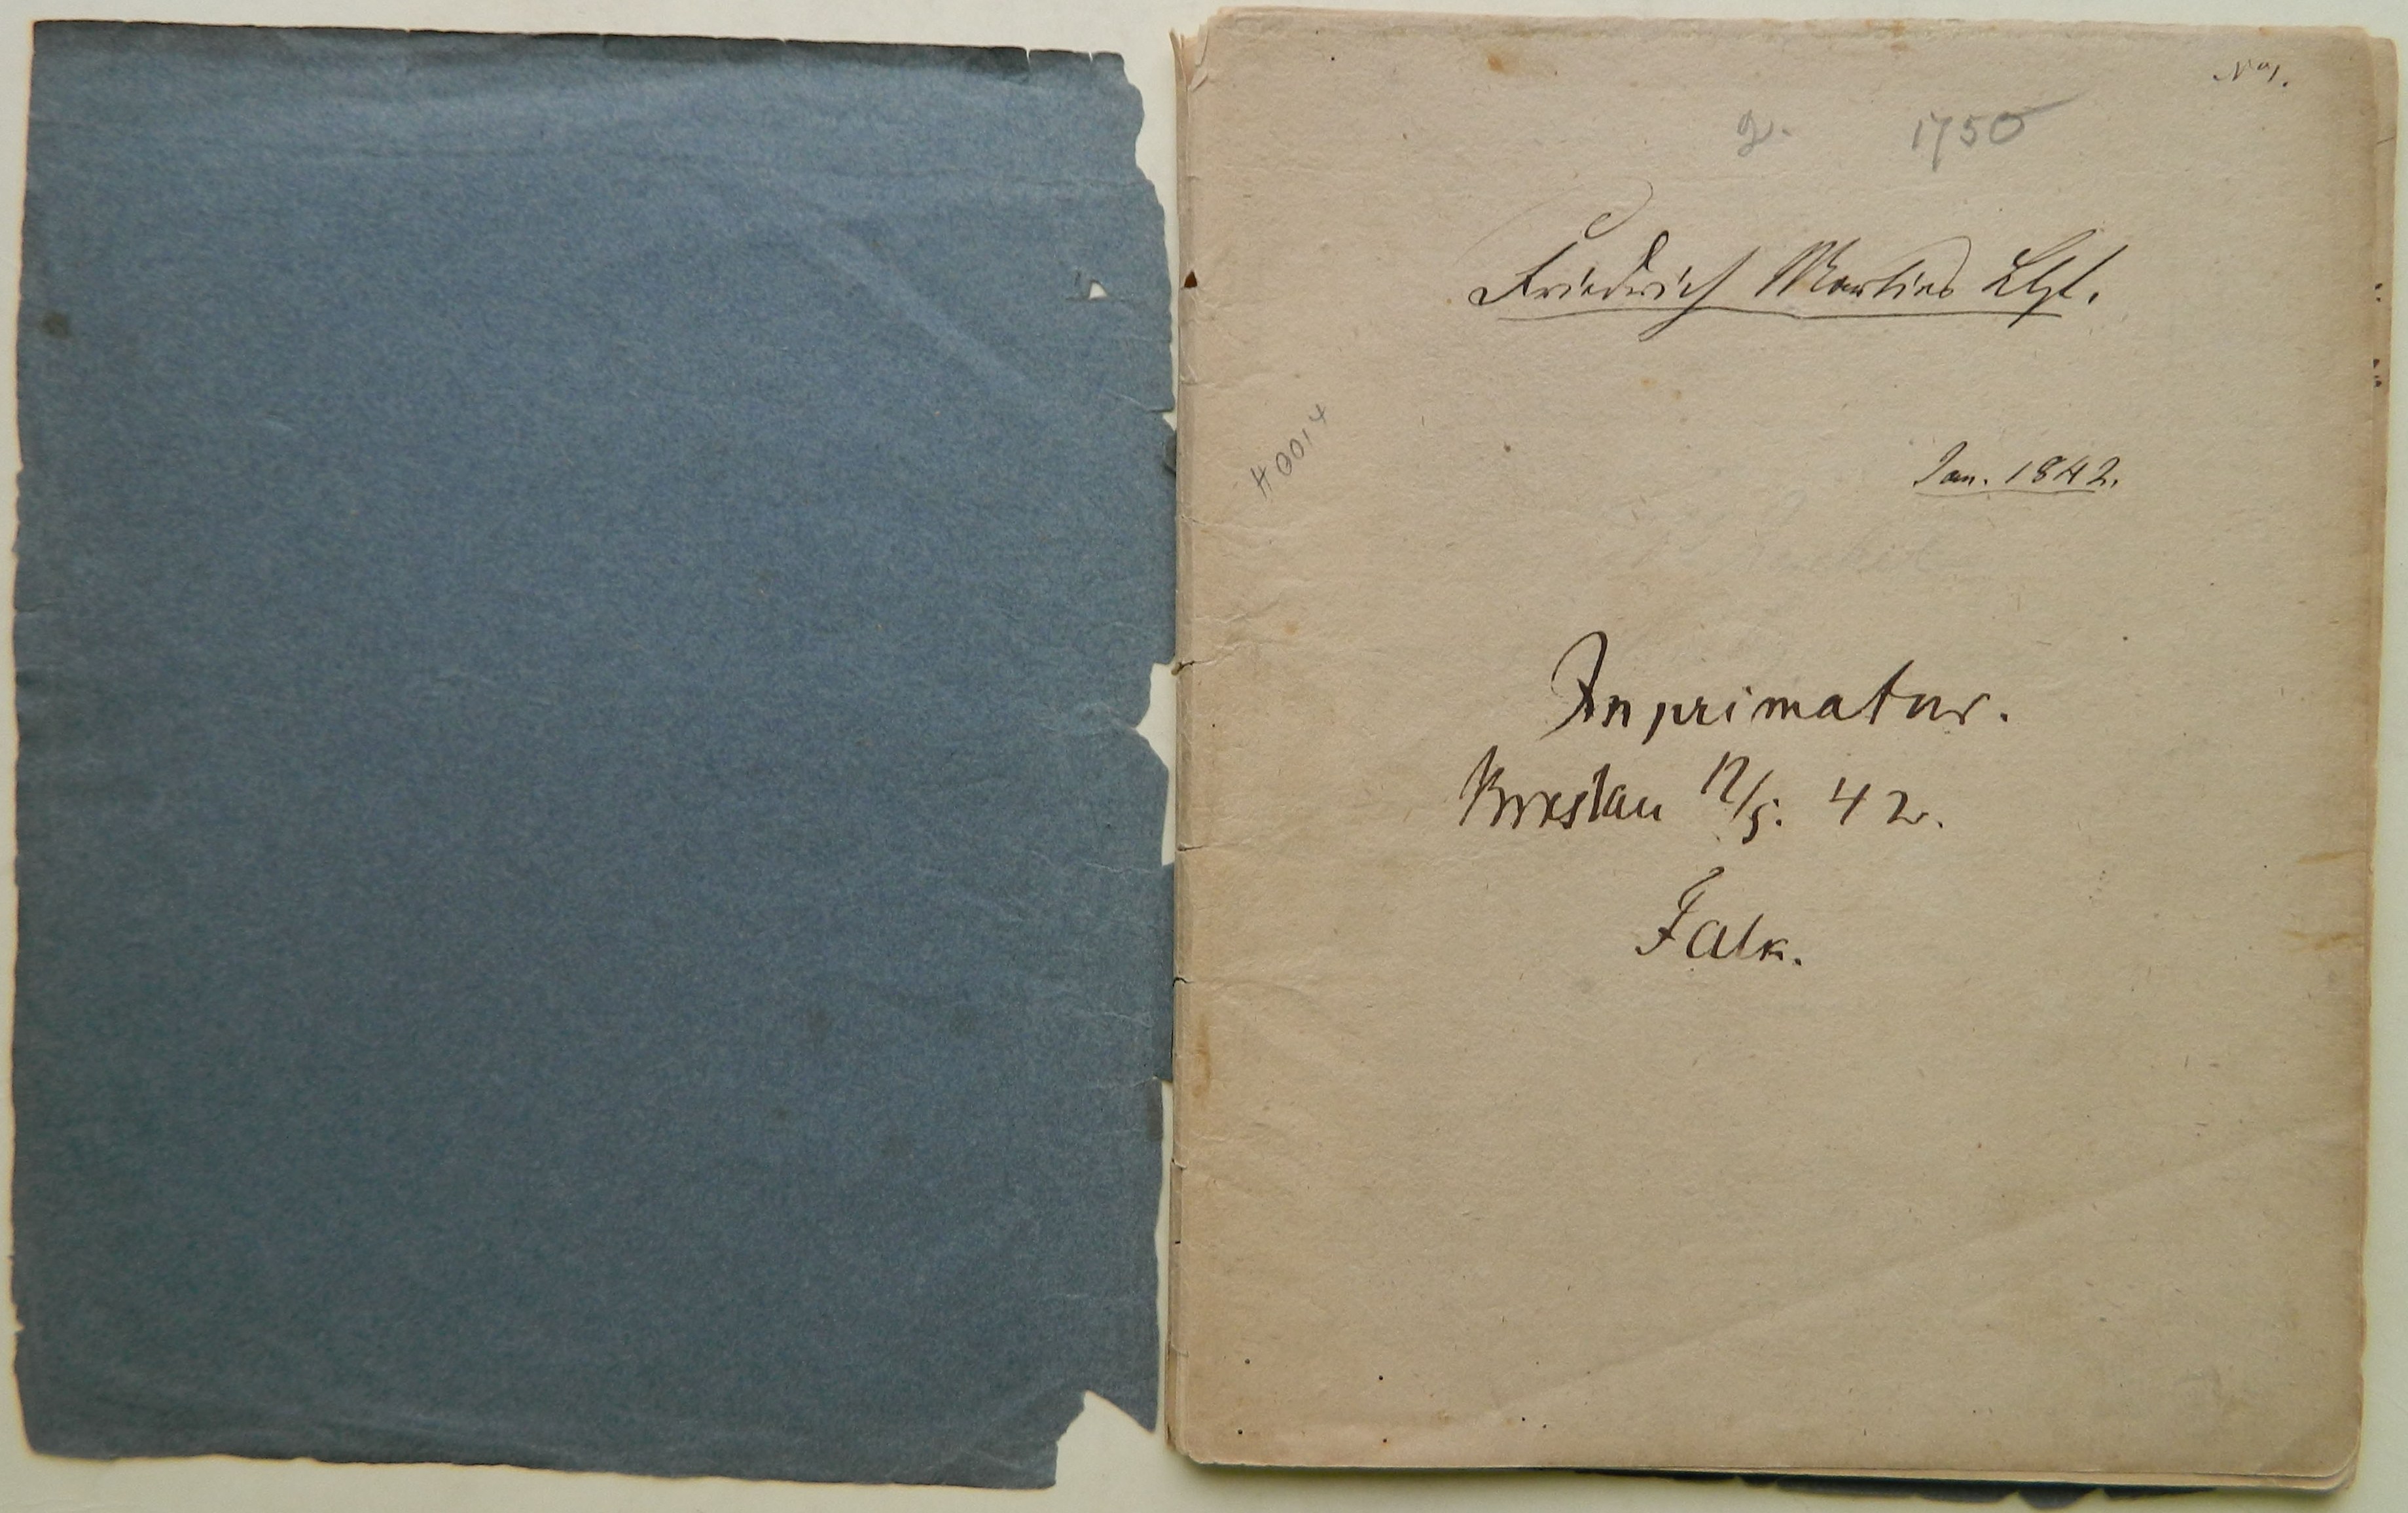 No 1.
2. 1750
Friedrich Martins Lgt.
Jan. 1842.
H0014
Imprimatur.
Breslau 12/5. 42.
Falk.